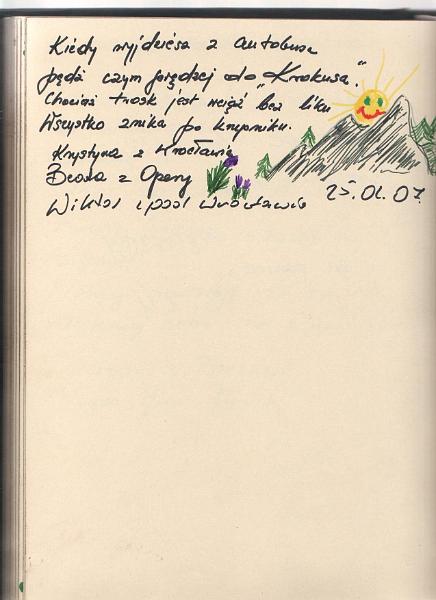 Kiedy wyjdziesz z autobusa
pędź czym prędzej do "Krokusa".
Chociaż trosk jest wciąż bez liku
Wszystko znika po knyrniku.
Krystyna z Wrocławia
Beata z Opery
Wiktor spod Wrocławia
25.01.07.